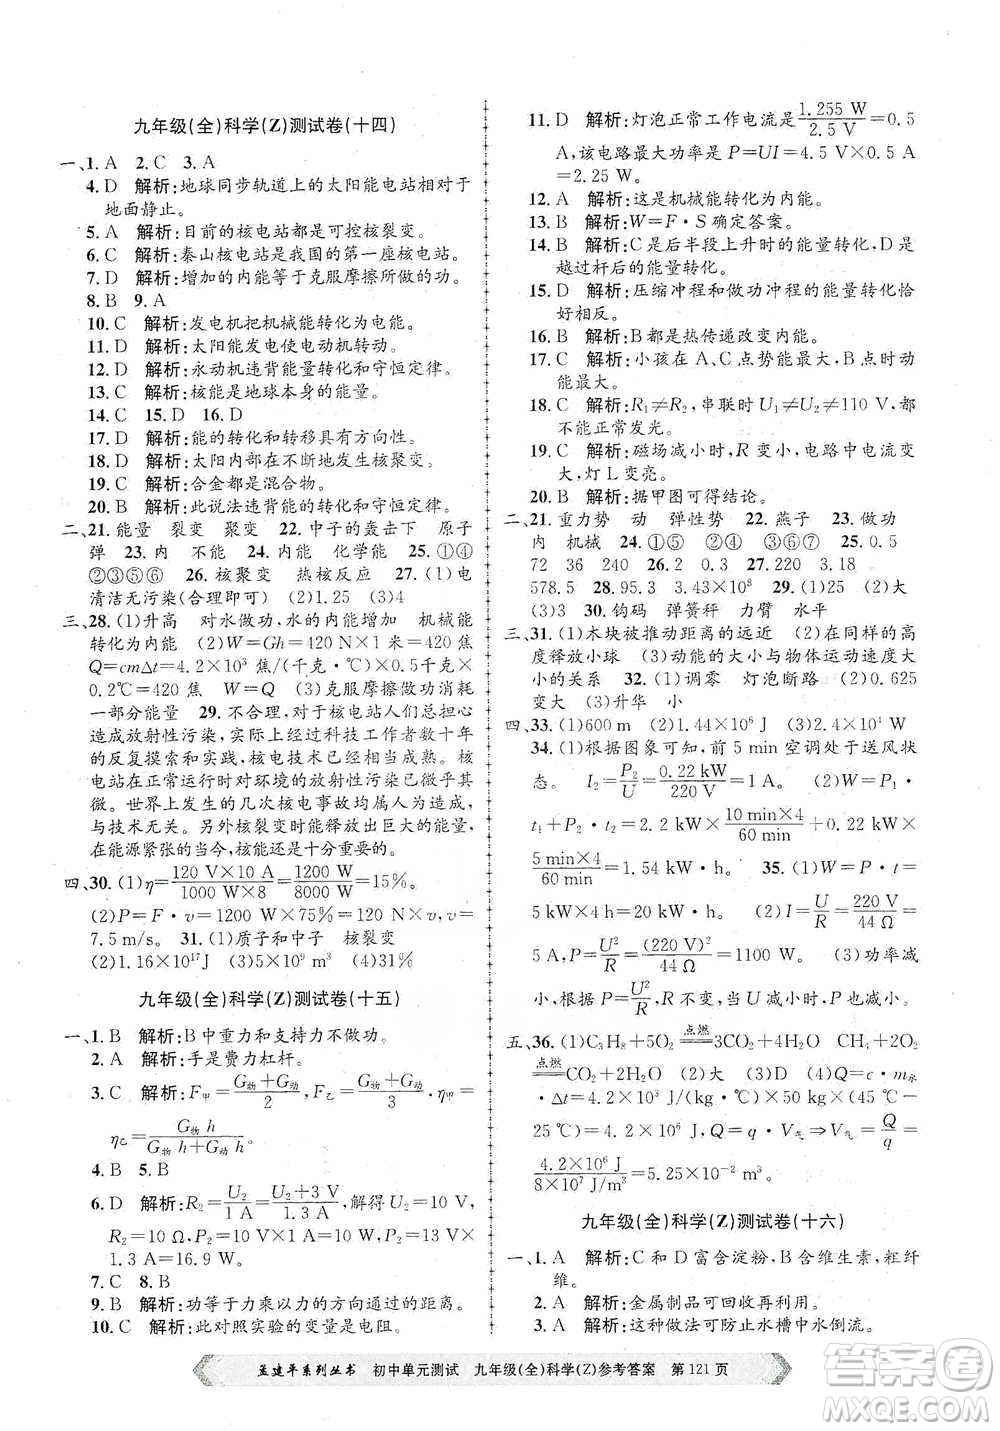 九年级(全)科学(Z)测试卷(十四)
一、1. A 2. C 3. A
4. D 解析:地球同步轨道上的太阳能电站相对于
地面静止。
5. A 解析:目前的核电站都是可控核裂变。
6. C 解析:秦山核电站是我国的第一座核电站。
7. D 解析:增加的内能等于克服摩擦所做的功。
8. B 9. A
10. C 解析:发电机把机械能转化为电能。
11. D 解析:太阳能发电使电动机转动。
12. D 解析:永动机违背能量转化和守恒定律。
13. C 解析:核能是地球本身的能量。
14. C 15. D 16. D
17. D 解析:能的转化和转移具有方向性。
18. D 解析:太阳内部在不断地发生核聚变。
19. C 解析:合金都是混合物。
20. B 解析:此说法违背能的转化和守恒定律。
二、21. 能量 裂变 聚变 22. 中子的轰击下 原子
弹 23. 内 不能 24. 内能 化学能 25. ①④
②③⑤⑥ 26. 核聚变 热核反应 27. (1)电
清洁无污染(合理即可) (2)1.25 (3)4
三、28. (1)升高 对水做功,水的内能增加 机械能
转化为内能 (2)W=Gh=420 N×1 米=420焦
Q=cmΔt=4.2×10³ 焦/(千克·℃)×0.5千克
×0.2℃=420 焦 W=Q (3)克服摩擦消耗
一部分能量 29. 不合理,对于核电站人们总担心
放射性污染,实际上经过科技工作者数十年
的反复摸索和实践,核电技术已相当成熟。核
电站在正常运行时对环境的放射性污染已微乎其
微。世界上发生的几次核电事故均属人为造成,
与技术无关。另外核裂变时能释放出巨大的能量,
在能源紧张的当今,核能还是十分重要的。
四、30. (1)η=120 V×10 A/1000 W×8=1200 W/8000 W=15%。
(2)P=F·v=1200 W×75%=120 N×v,v=
7.5 m/s。 31. (1)质子和中子 核裂变
(2)1.16×10¹⁷J (3)290 m³ (4)31%
九年级(全)科学(Z)测试卷(十五)
一、1. B 解析:B中重力和支持力不做功。
2. A 解析:手是费力杠杆。
3. C 解析:F甲=G物+G动/2,F乙=G物+G动/3,η甲=
η乙=G物 h/G物 h+G动 h。
4. B 5. B
6. D 解析:R₂=U₂/1 A=U₂+3 V/1.3 A,解得U₂=10 V,
R₂=10 Ω,P₂=10 V×1 A=10 W,P₂′=13 V
×1.3 A=16.9 W。
7. C 8. B
9. B 解析:功等于力乘以力的方向通过的距离。
10. C 解析:此对照实验的变量是电阻。
11. D 解析:灯泡正常工作电流是1.255 W/2.5 V=0.5
A,该电路最大功率是P=UI=4.5 V×0.5 A
=2.25 W。
12. A 解析:这是机械能转化为内能。
13. B 解析:W=F·S确定答案。
14. B 解析:C是后半段上升时的能量转化,D是
越过杆后的能量转化。
15. D 解析:压缩冲程和做功冲程的能量转化恰
好相反。
16. B 解析:B都是热传递改变内能。
17. C 解析:小孩在A、C点势能最大,B点时动
能最大。
18. C 解析:R₁≠R₂,串联时U₁≠U₂≠110 V,都
不能正常发光。
19. C 解析:磁场减小时,R变小,电路中电流变
大,灯L变亮。
20. B 解析:据甲图可得结论。
二、21. 重力势 动 弹性势 22. 燕子 23. 做功
内 机械 24. ①⑤ ②③④⑥ 25. ③ 26. 0.5
72 36 240 0.3 27. 220 3.18
578.5 28. 95.3 3.43×10⁸ 29. (1)25 (2)大
(3)3 30. 钩码 弹簧秤 力臂 水平
三、31. (1)木块被推动距离的远近 (2)在同样的高
度释放小球 (3)动能的大小与物体运动速度大
小的关系 32. (1)调零 灯泡断路 (2)0.625
变大 (3)升华 小
四、33. (1)600 m (2)1.44×10⁶ J (3)2.4×10⁴ W
34. (1)根据图象可知,前5 min空调处于送风状
态。 I₂=P₂/U=0.22 kW/220 V=1 A。 (2)W=P₁·
t₁+P₂·t₂=2.2 kW×10 min×4/60 min+0.22 kW×
5 min×4/60 min=1.54 kW·h 35. (1)W=P·t=
5 kW×1 h=5 kW·h。 (2)I=U/R=220 V/44 Ω=
5 A,P=U²/R=(220 V)²/44 Ω=1100 W。 (3)功率
P=U²/R,R不变,当U减小时,P也减小。
五、36. (1)C₃H₈+5O₂点燃3CO₂+4H₂O CH₄+2O₂
点燃CO₂+2H₂O (2)大 (3)D (4)Q=c·m水
·Δt=4.2×10³ J/(kg·℃)×50 kg×(45℃-
25℃)=4.2×10⁶ J,Q=q·V气⇒V气=Q/q=
4.2×10⁶ J/8×10⁷ J/m³=5.25×10⁻² m³。
九年级(全)科学(Z)测试卷(十六)
一、1. A 解析:C和D富含淀粉,B含维生素,粗纤
维。
2. A 解析:金属制品可回收再利用。
3. A 解析:这种做法可防止水槽中水倒流。
孟建平系列丛书 初中单元测试 九年级(全)科学(Z)参考答案 第121页
作业帮
WWW.MXQE.COM